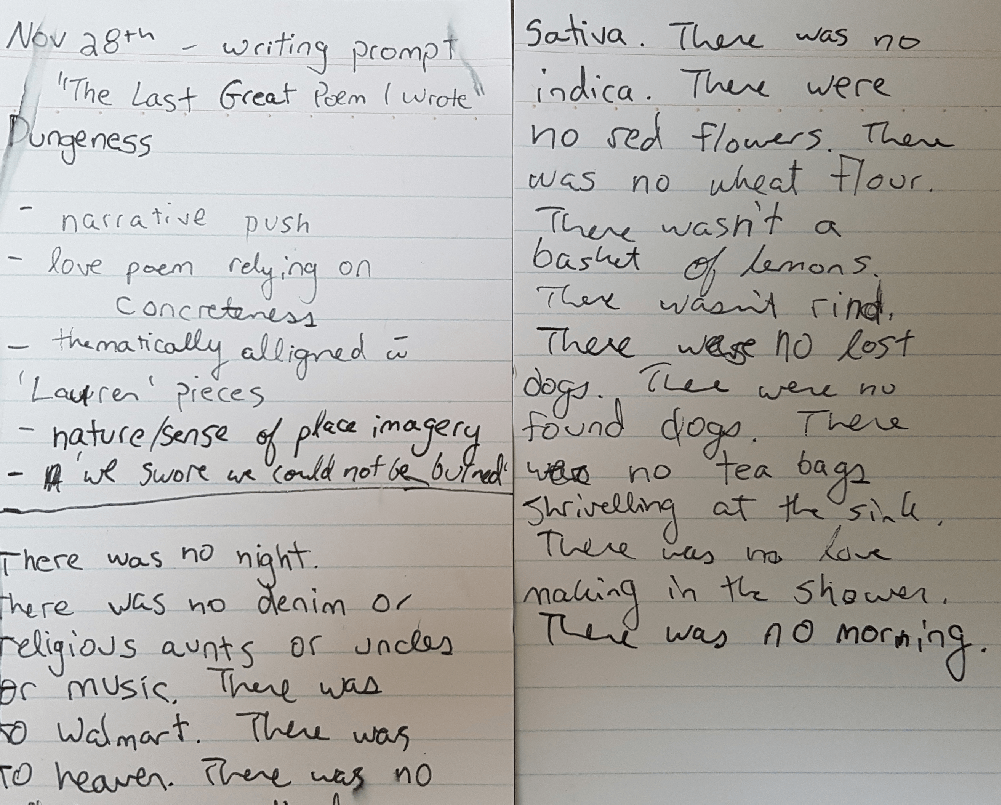 Nov 28th - writing prompt
"The Last Great Poem I Wrote"
Dungeness
- narrative push
- love poem relying on
concreteness
- thematically alligned w̄
'Lauren' pieces
- nature/sense of place imagery
- 'we swore we could not be burned'
There was no night.
There was no denim or
religious aunts or uncles
or music. There was
no Walmart. There was
no heaven. There was no
Sativa. There was no
indica. There were
no red flowers. There
was no wheat flour.
There wasn't a
basket of lemons.
There wasn't rind.
There were no lost
dogs. There were no
found dogs. There
were no tea bags
shrivelling at the sink.
There was no love
making in the shower.
There was no morning.